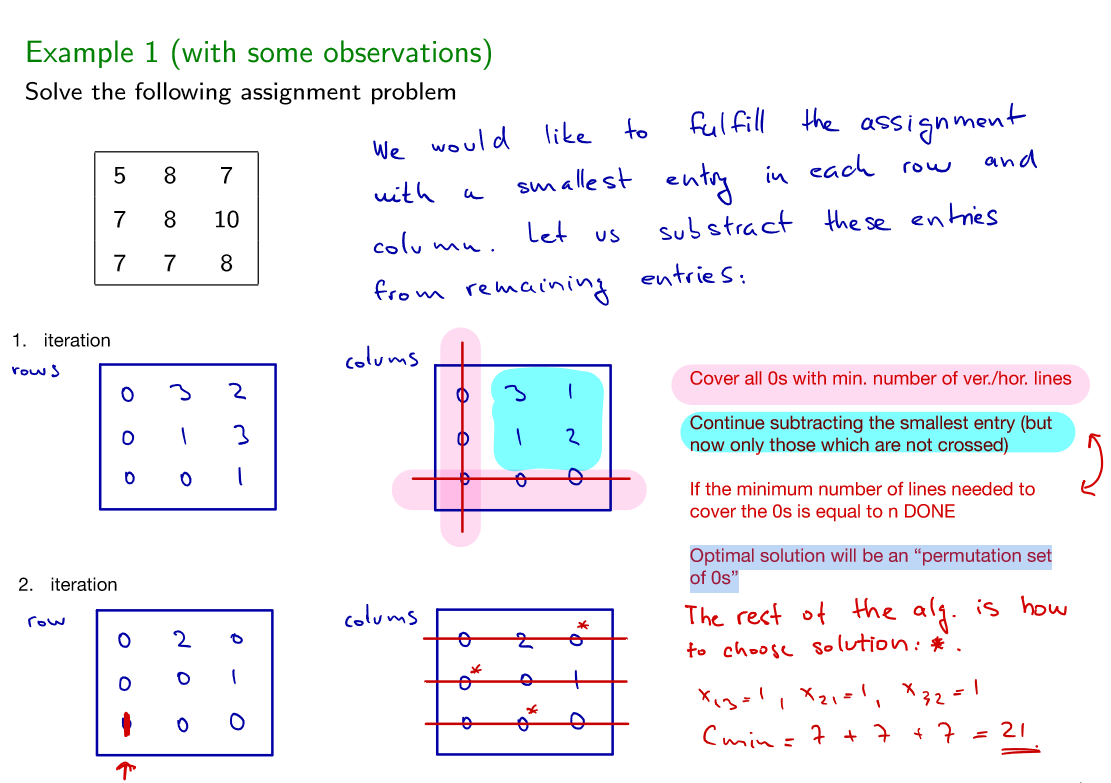 Example 1 (with some observations)
Solve the following assignment problem
5 8 7
7 8 10
7 7 8
We would like to fulfill the assignment
with a smallest entry in each row and
column. Let us substract these entries
from remaining entries:
1. iteration
rows
0 3 2
0 1 3
0 0 1
colums
0 3 1
0 1 2
0 0 0
Cover all 0s with min. number of ver./hor. lines
Continue subtracting the smallest entry (but
now only those which are not crossed)
If the minimum number of lines needed to
cover the 0s is equal to n DONE
Optimal solution will be an “permutation set
of 0s”
2. iteration
row
0 2 0
0 0 1
0 0
colums
0 2 0*
0* 0 1
0 0* 0
The rest of the alg. is how
to choose solution: *.
x13=1, x21=1, x32=1
Cmin = 7 + 7 + 7 = 21.